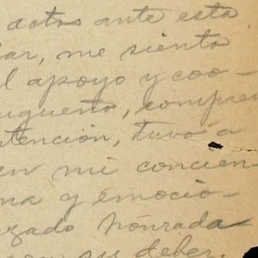 actos ante esta
iar, me siento
l apoyo y coo-
ugueño, compren
tención, tuvo a
en mi concien
na y emocio-
zado honrada
su deber.